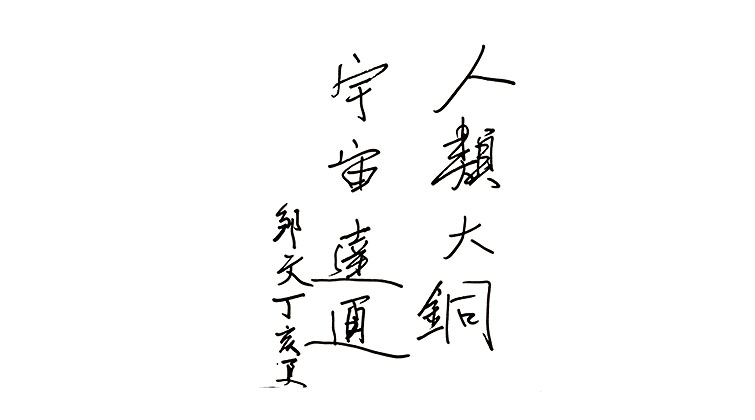 人類大銅
宇宙達通
邹文丁亥夏